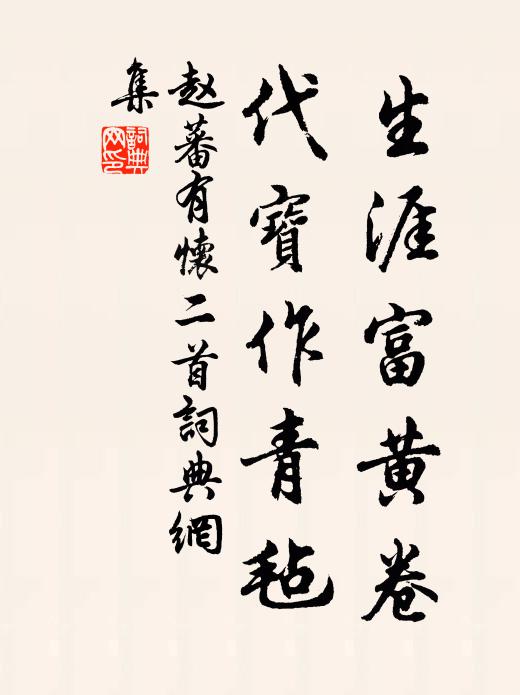 生涯富黄卷
代寶作青毡
赵蕃有懷二首詞典網
集
詞典网印